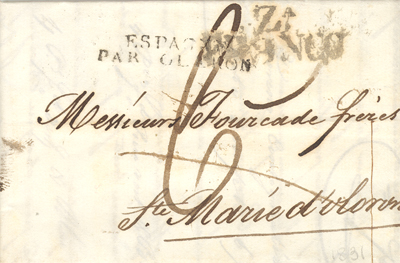 ESPAGNE
PAR OLERON
6
Messieurs Fourcade frères
Ste Marie d'oloron
1831